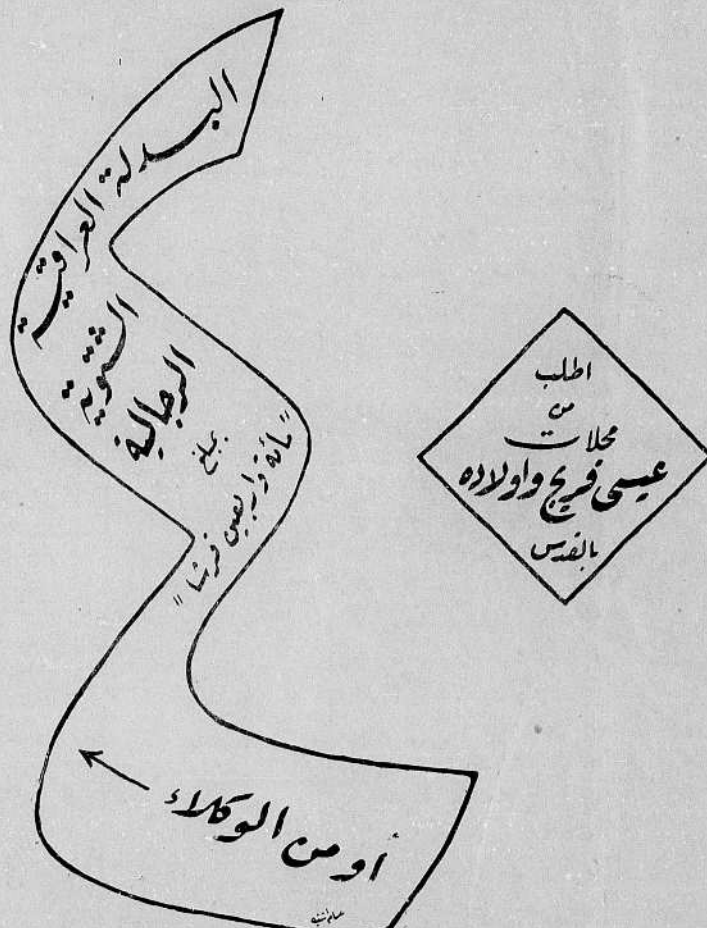 البدلة العراقية
الشتوية
الرجالية
بمبلغ
"مائة واربعين قرشا"
اطلب
من
محلات
عيسى فريج واولاده
بالقدس
أو من الوكلاء